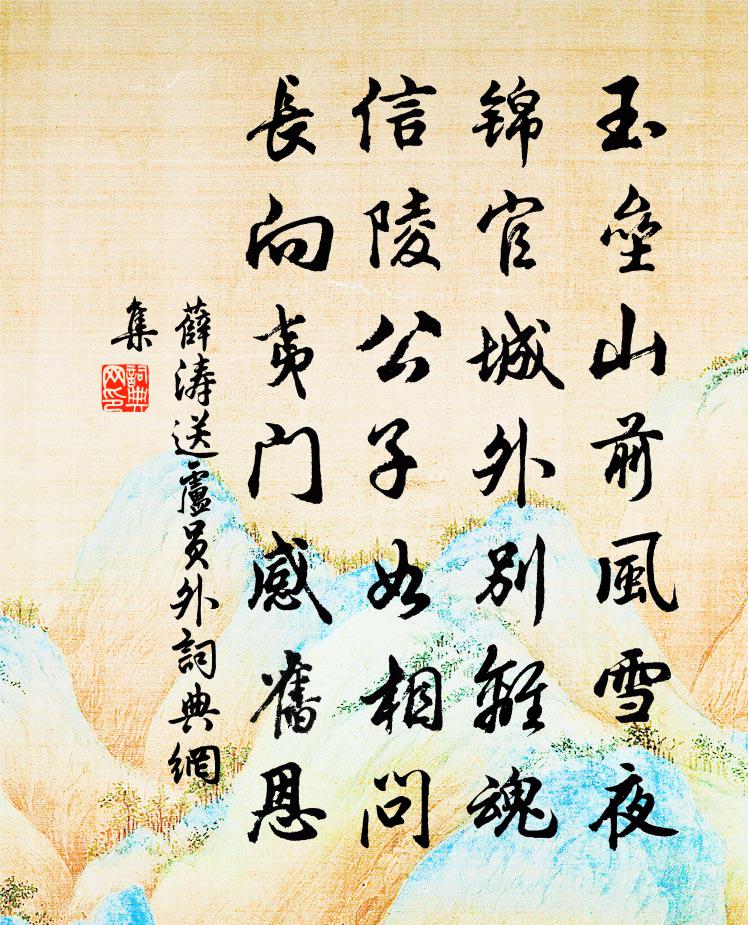 玉壘山前風雪夜
錦官城外別離魂
信陵公子如相問
長向夷門感舊恩
薛濤送盧員外詞典網
集
詞典
网印